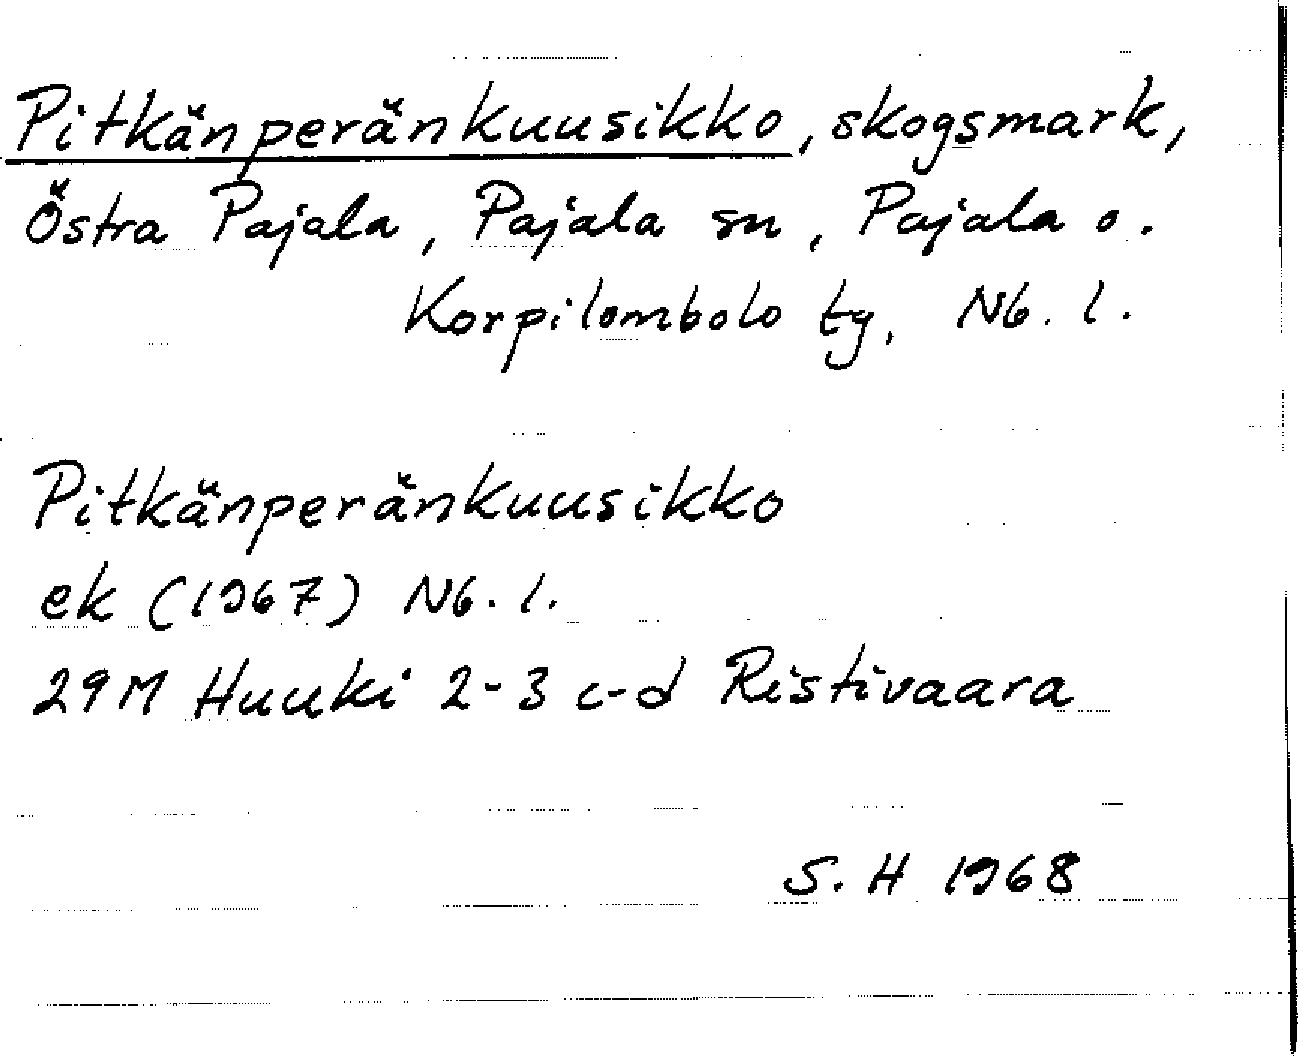 Pitkänperänkuusikko, skogsmark,
Östra Pajala, Pajala sn, Pajala o.
Korpilombolo tg, Nb. l.
Pitkänperänkuusikko
ek (1967) Nb. l.
29M Huuki 2-3 c-d Ristivaara
S. H 1968